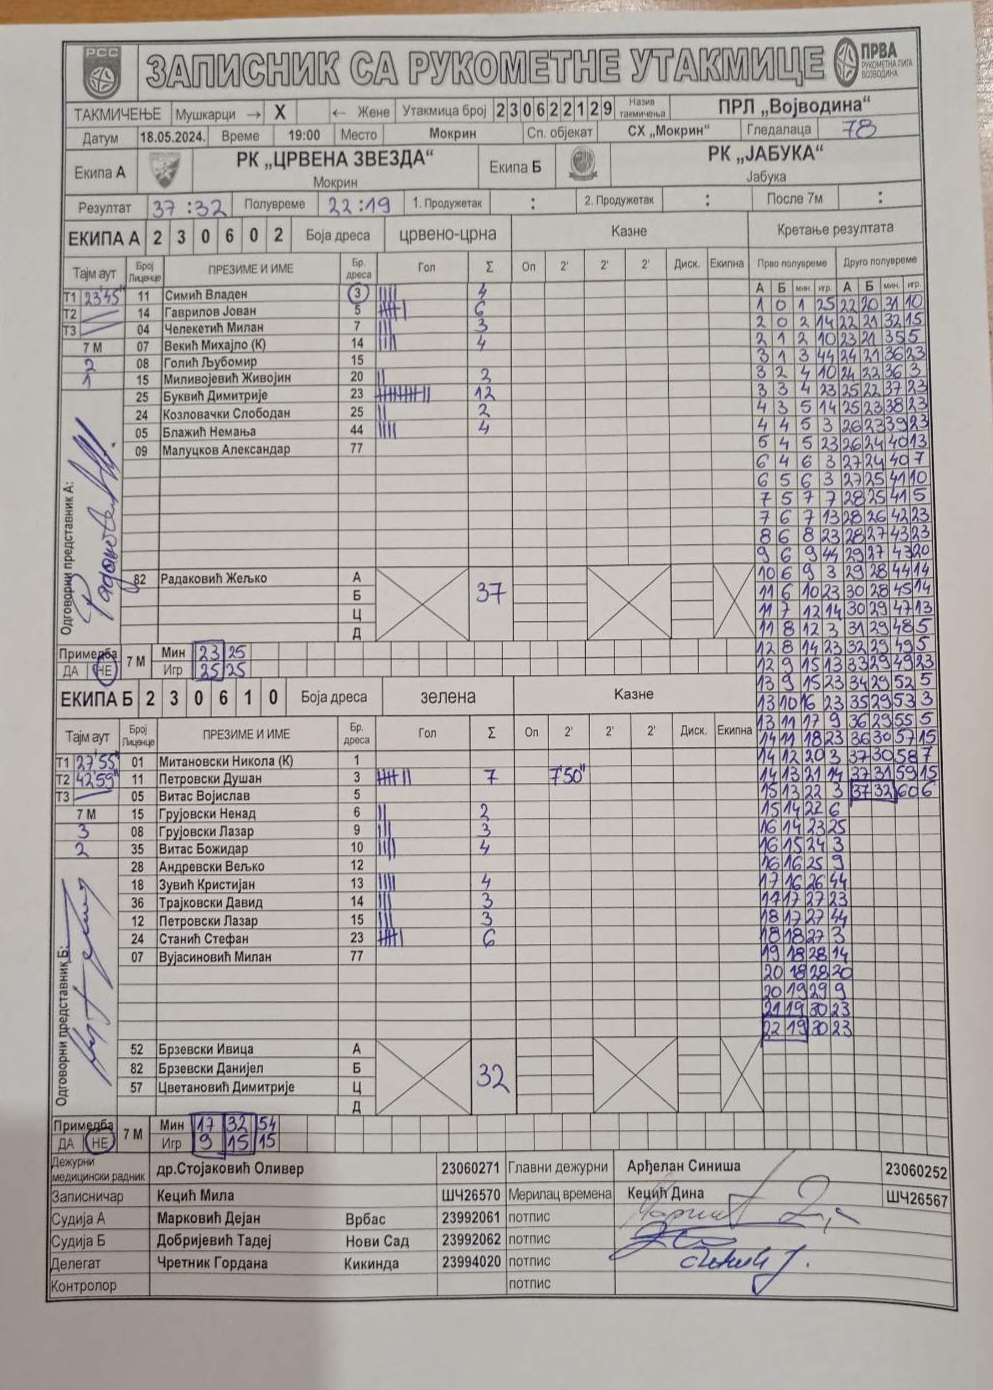 РСС
ЗАПИСНИК СА РУКОМЕТНЕ УТАКМИЦЕ
ПРВА
РУКОМЕТНА ЛИГА
ВОЈВОДИНА
ТАКМИЧЕЊЕ Мушкарци → X ← Жене Утакмица број 2 3 0 6 2 2 1 2 9 Назив такмичења ПРЛ „Војводина“
Датум 18.05.2024. Време 19:00 Место Мокрин Сп. објекат СХ „Мокрин“ Гледалаца 78
Екипа А РК „ЦРВЕНА ЗВЕЗДА“ Екипа Б РК „ЈАБУКА“
Мокрин Јабука
Резултат 37:32 Полувреме 22:19 1. Продужетак : 2. Продужетак : После 7м :
ЕКИПА А 2 3 0 6 0 2 Боја дреса црвено-црна Казне Кретање резултата
Тајм аут Број Лиценце ПРЕЗИМЕ И ИМЕ Бр. дреса Гол Σ Оп 2' 2' 2' Диск. Екипна Прво полувреме Друго полувреме
А Б мин. игр. А Б мин. игр.
Т1 23'45" 11 Симић Владен 3 4 1 0 1 25 22 20 31 10
Т2 14 Гаврилов Јован 5 6 2 0 2 14 22 21 32 15
Т3 04 Челекетић Милан 7 3 2 1 2 10 23 21 35 5
7 М 07 Векић Михајло (К) 14 4 3 1 3 44 24 21 36 23
2 08 Голић Љубомир 15 3 2 4 10 24 22 36 3
1 15 Миливојевић Живојин 20 2 3 3 4 23 25 22 37 23
25 Буквић Димитрије 23 12 4 3 5 14 25 23 38 23
24 Козловачки Слободан 25 2 4 4 5 3 26 23 39 23
05 Блажић Немања 44 4 5 4 5 23 26 24 40 13
09 Малуцков Александар 77 6 4 6 3 27 24 40 7
6 5 6 3 27 25 41 10
7 5 7 7 28 25 41 5
7 6 7 13 28 26 42 23
8 6 8 23 28 27 43 23
9 6 9 44 29 27 43 20
Одговорни представник А:
82 Радаковић Жељко А 37 10 6 9 3 29 28 44 14
Б 11 6 10 23 30 28 45 14
Ц 11 7 12 14 30 29 47 13
Д 11 8 12 3 31 29 48 5
Примедба 7 М Мин 23 25 12 8 14 23 32 29 49 5
ДА НЕ Игр 25 25 12 9 15 13 33 29 49 23
ЕКИПА Б 2 3 0 6 1 0 Боја дреса зелена Казне 13 9 15 23 34 29 52 5
13 10 16 23 35 29 53 3
Тајм аут Број Лиценце ПРЕЗИМЕ И ИМЕ Бр. дреса Гол Σ Оп 2' 2' 2' Диск. Екипна 13 11 17 9 36 29 55 5
14 11 18 23 36 30 57 15
Т1 27'55" 01 Митановски Никола (К) 1 14 12 20 3 37 30 58 7
Т2 42'59" 11 Петровски Душан 3 7 7'50" 14 13 21 14 37 31 59 15
Т3 05 Витас Војислав 5 15 13 22 3 37 32 60 6
7 М 15 Грујовски Ненад 6 2 15 14 22 6
3 08 Грујовски Лазар 9 3 16 14 23 25
2 35 Витас Божидар 10 4 16 15 24 3
28 Андревски Вељко 12 16 16 25 9
18 Зувић Кристијан 13 4 17 16 26 44
36 Трајковски Давид 14 3 17 17 27 23
12 Петровски Лазар 15 3 18 17 27 44
24 Станић Стефан 23 6 18 18 27 3
07 Вујасиновић Милан 77 19 18 28 14
20 18 28 20
20 19 29 9
21 19 30 23
22 19 30 23
Одговорни представник Б:
52 Брзевски Ивица А
82 Брзевски Данијел Б 32
57 Цветановић Димитрије Ц
Д
Примедба 7 М Мин 17 32 54
ДА НЕ Игр 9 15 15
Дежурни медицински радник др.Стојаковић Оливер 23060271 Главни дежурни Арђелан Синиша 23060252
Записничар Кецић Мила ШЧ26570 Мерилац времена Кецић Дина ШЧ26567
Судија А Марковић Дејан Врбас 23992061 потпис
Судија Б Добријевић Тадеј Нови Сад 23992062 потпис
Делегат Чретник Гордана Кикинда 23994020 потпис
Контролор потпис